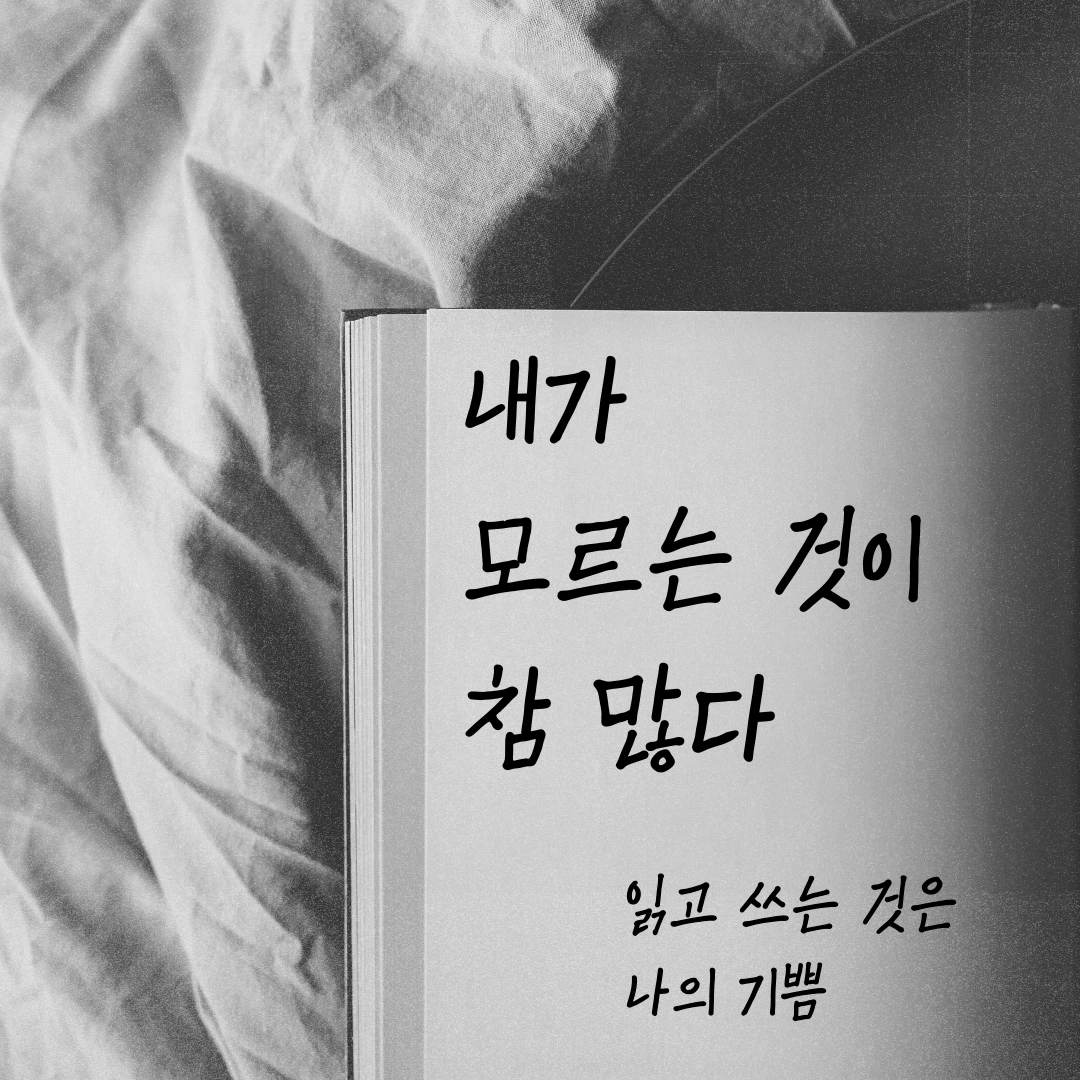 내가
모르는 것이
참 많다
읽고 쓰는 것은
나의 기쁨